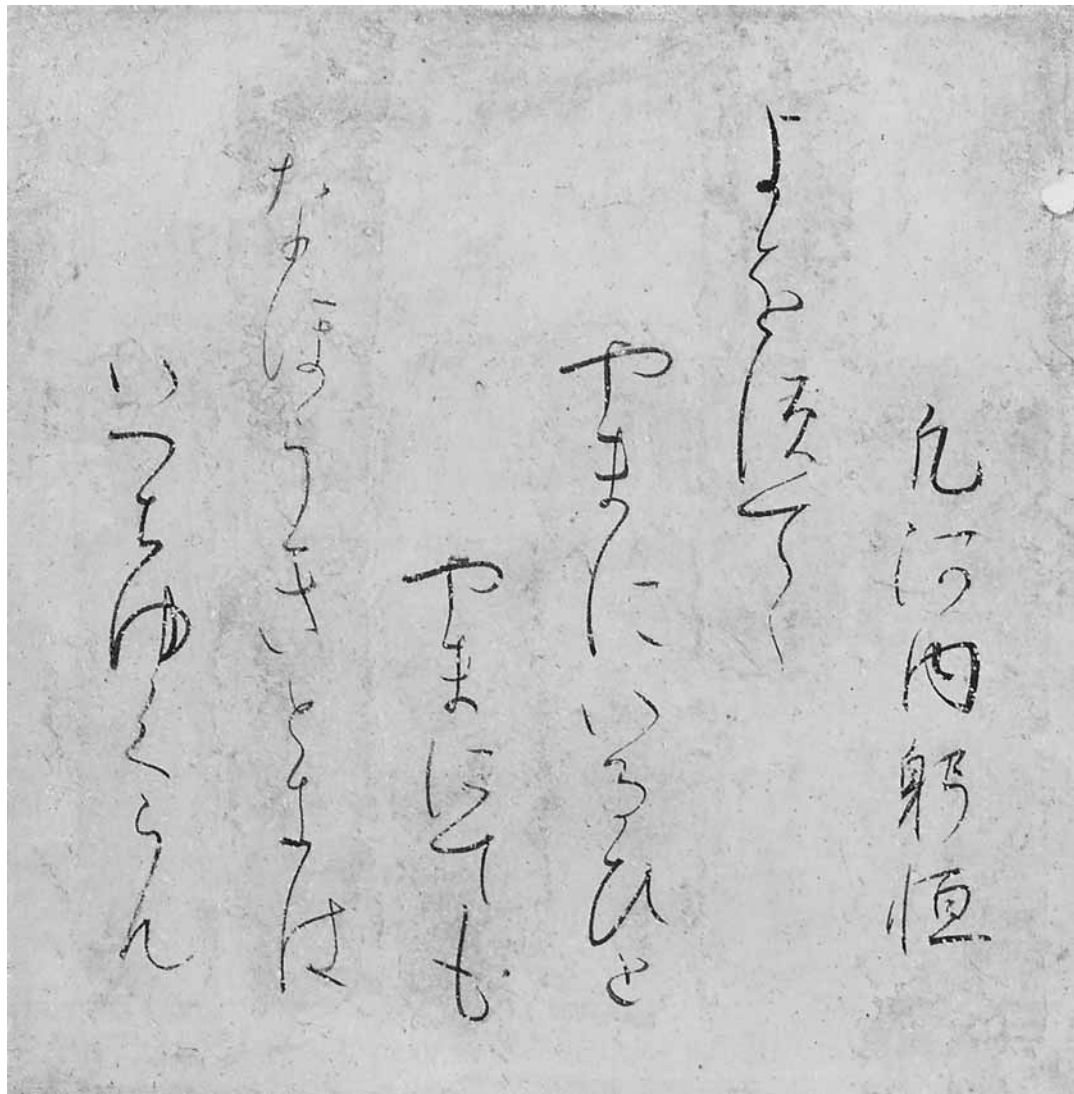 凡河内躬恒
よをすてゝ
やまにいるひと
やまにても
なほうきときは
いづちゆくらん